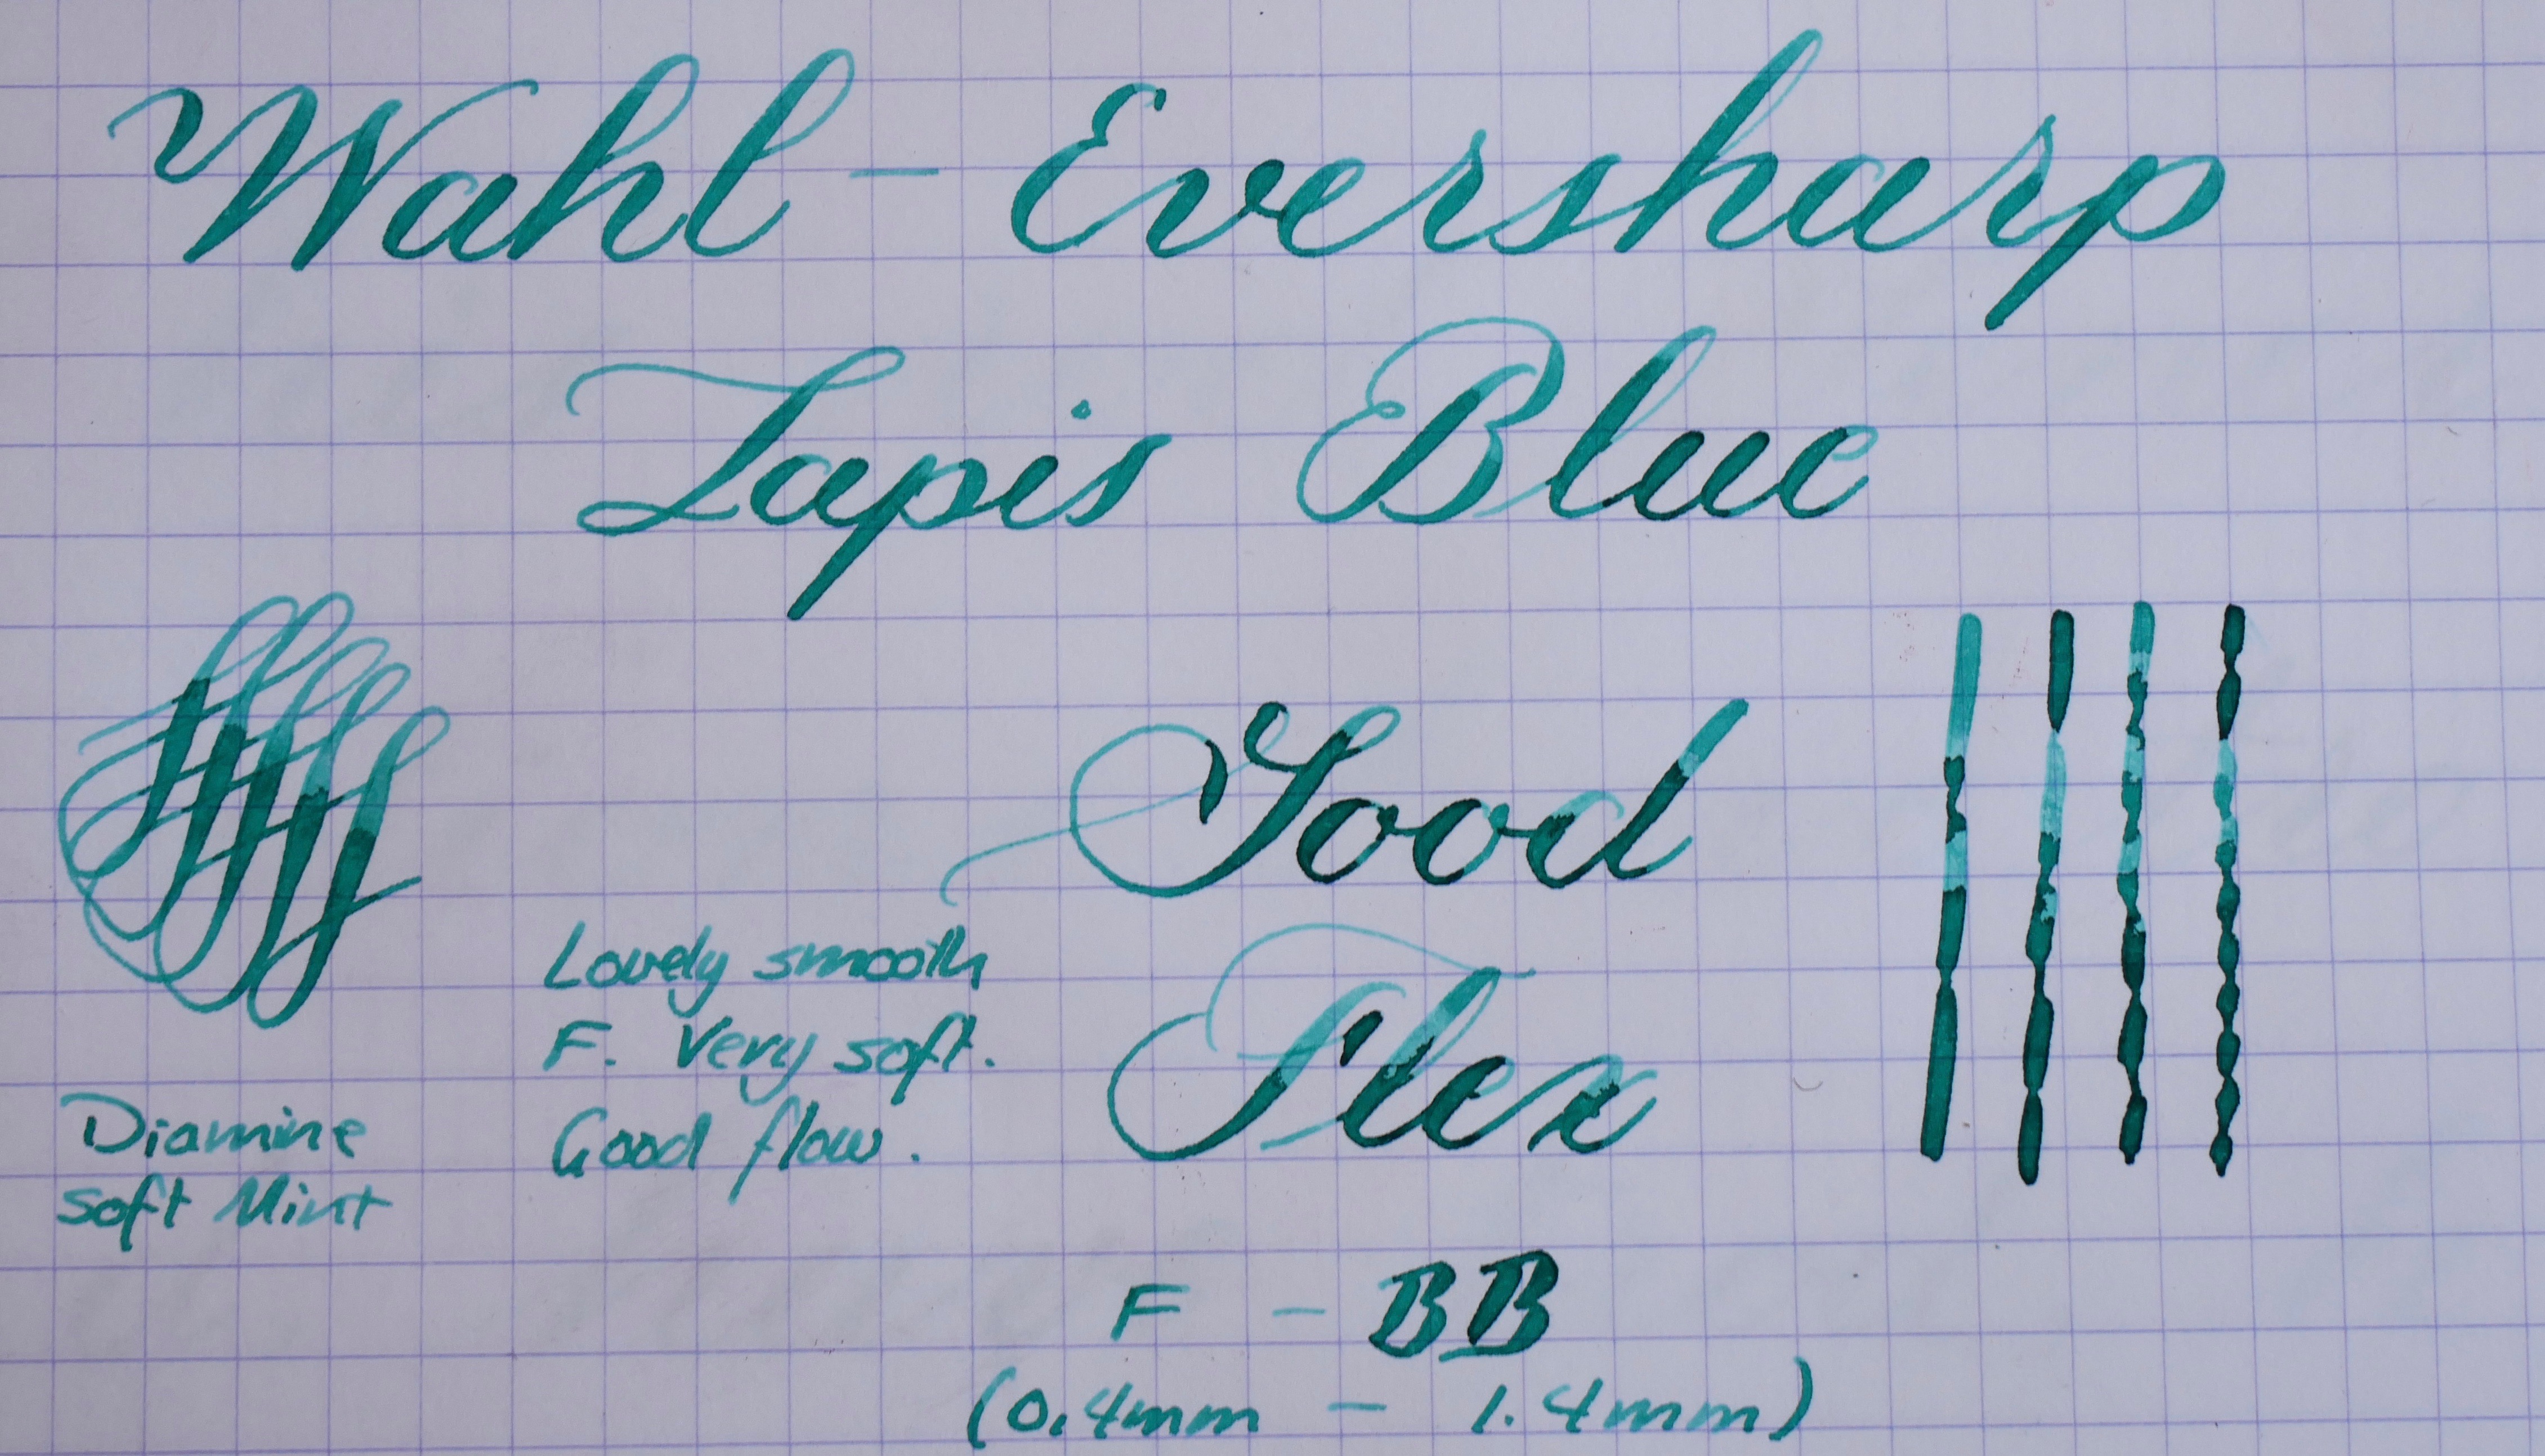 Wahl - Eversharp
Lapis Blue
Good
Flex
Lovely smooth
F. Very soft.
Good flow.
Diamine
soft Mint
F - BB
(0.4mm - 1.4mm)